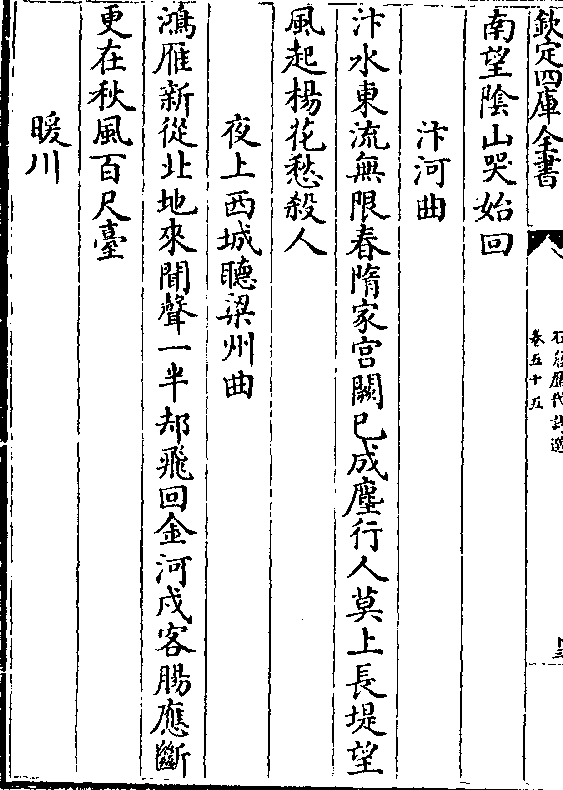 欽定四庫全書
卷五十五
南望陰山哭始回
汴河曲
汴水東流無限春隋家宫闕已成塵行人莫上長堤望
風起楊花愁殺人
夜上西城聽梁州曲
鴻雁新從北地來聞聲一半却飛回金河戍客腸應斷
更在秋風百尺臺
暖川